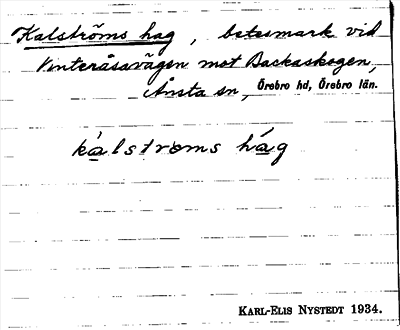 Kalströms hag, betesmark vid
Vinteråsavägen mot Backaskogen,
Ånsta sn, Örebro hd, Örebro län.
kálströms hág
KARL-ELIS NYSTEDT 1934.